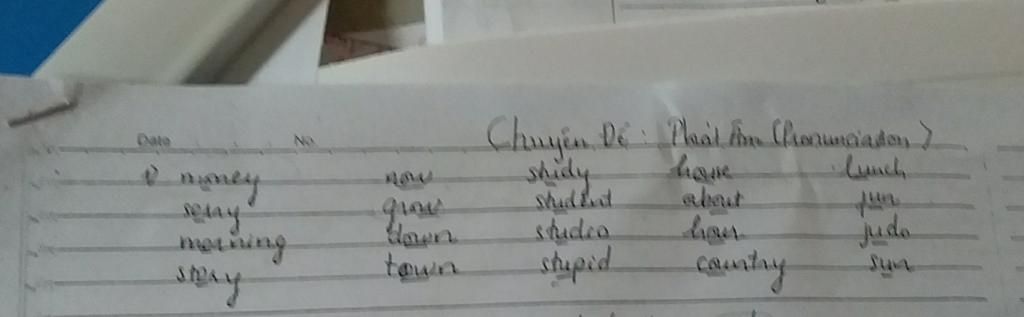 Date No. Chuyên Đề : Phát Âm (Pronunciation)
1) money now study house lunch
sorry grow student about fun
morning down studio hour judo
story town stupid country sun